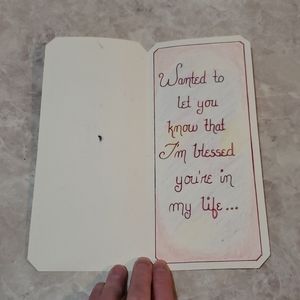 Wanted to
let you
know that
I'm blessed
you're in
my life...